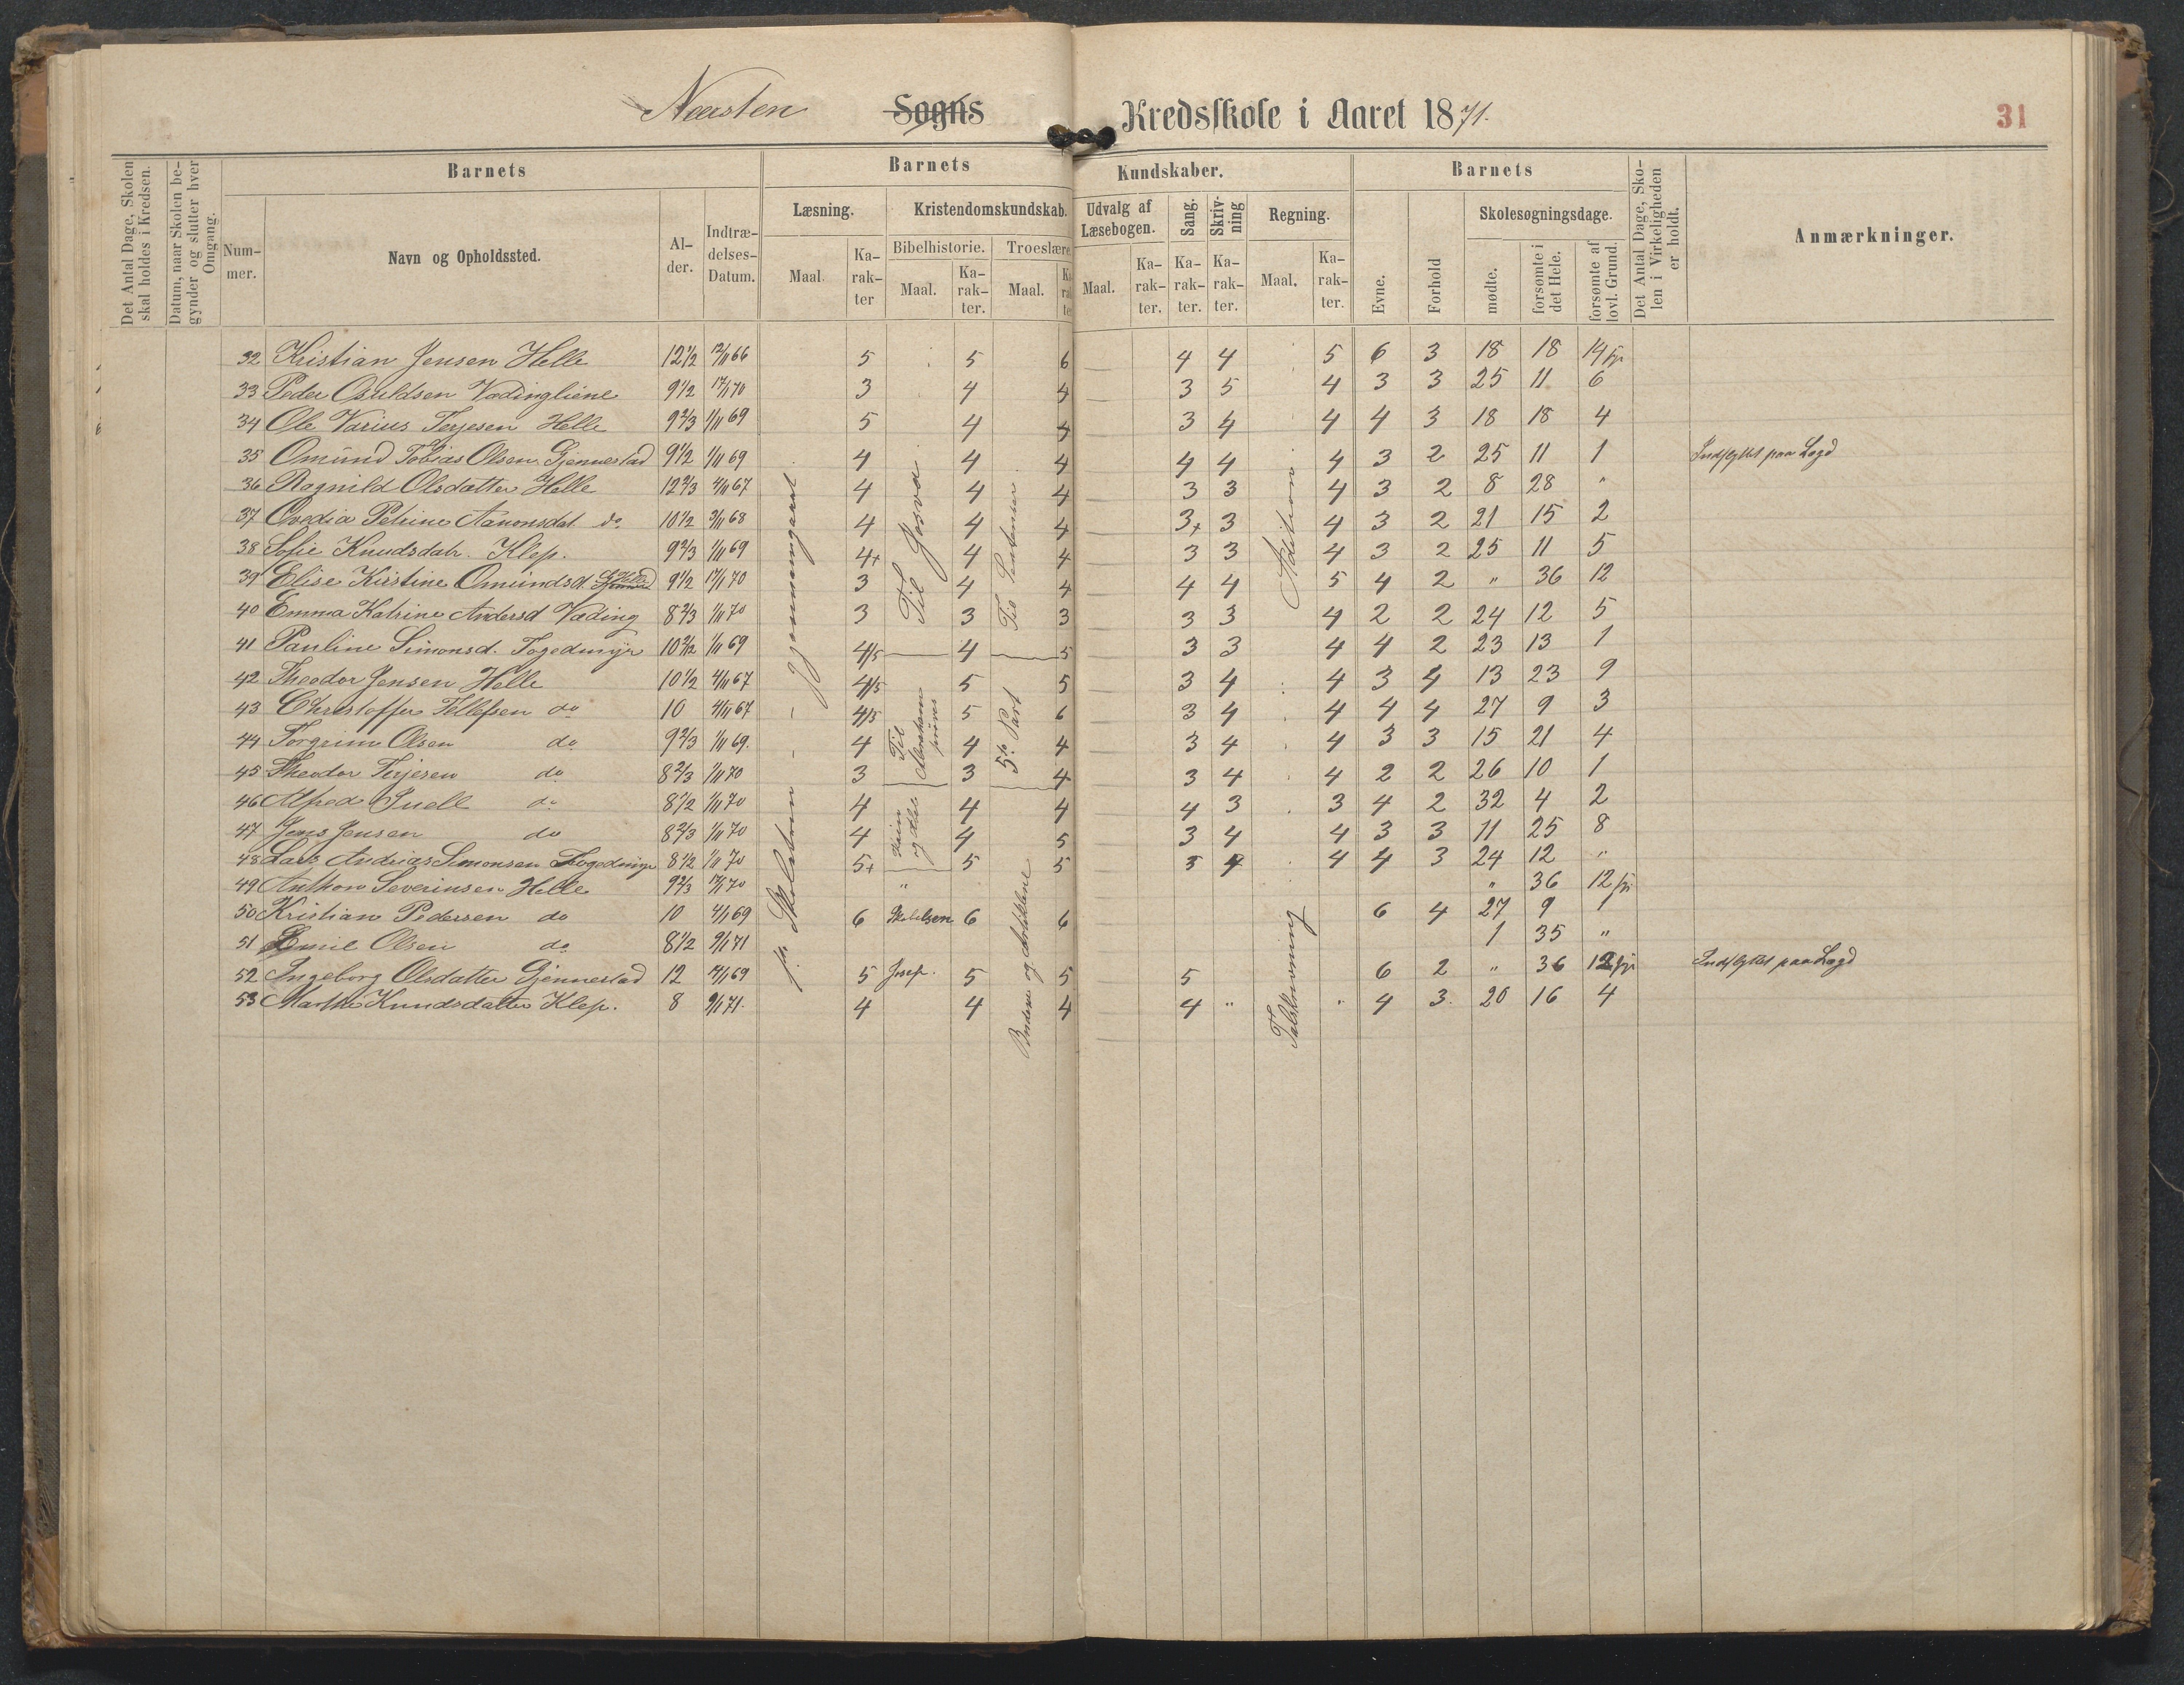 Næsten Sogns Kredsskole i Aaret 1871. 31
Det Antal Dage, Skolen skal holdes i Kredsen.
Datum, naar Skolen begynder og slutter hver Omgang.
Barnets
Barnets Kundskaber.
Barnets
Det Antal Dage, Skolen i Virkeligheden er holdt.
Anmærkninger.
Nummer. Navn og Opholdssted. Alder. Indtrædelses-Datum.
Læsning. Kristendomskundskab. Udvalg af Læsebogen. Sang. Skrivning Regning. Evne. Forhold Skolesøgningsdage.
Bibelhistorie. Troeslære.
Maal. Karakter Maal. Karakter. Maal. Karakter Maal. Karakter. Karakter. Karakter. Maal. Karakter. mødte. forsømte i det Hele. forsømte af lovl. Grund.
32 Kristian Jensen Helle 12 1/2 12/11 66 5 5 6 4 4 5 6 3 18 18 14 syg
33 Peder Osuldsen Vædingliene 9 1/2 17/1 70 3 4 4 3 5 4 3 3 25 11 6
34 Ole Varius Terjesen Helle 9 2/3 1/11 69 5 4 4 3 4 4 4 3 18 18 4
35 Omund Tobias Olsen Gjennestad 9 1/2 1/11 69 4 4 4 4 4 4 3 2 25 11 1 Indflyttet paa Lægd
36 Ragnild Olsdatter Helle 12 2/3 4/11 67 4 4 4 3 3 4 3 2 8 28 "
37 Ovedia Petrine Aanonsdat do 10 1/2 3/11 68 4 4 4 3+ 3 4 3 2 21 15 2
38 Sofie Knudsdatr. Klep. 9 2/3 1/11 69 4+ 4 4 3 3 4 3 2 25 11 5
39 Elise Kirstine Omundsd. 9 1/2 17/1 70 3 4 4 4 4 5 4 2 " 36 12
40 Emma Katrine Andersd Væding 8 2/3 1/11 70 3 3 3 3 3 4 2 2 24 12 5
41 Pauline Simonsd. Fogedmyr 10 1/11 69 4/5 4 5 3 3 4 4 2 23 13 1
42 Theodor Jensen Helle 10 1/2 4/11 67 4/5 5 5 3 4 4 3 4 13 23 9
43 Christoffer Tellefsen do 10 4/11 67 4/5 5 6 3 4 4 4 4 27 9 3
44 Torgrim Olsen do 9 2/3 1/11 69. 4 4 4 3 4 4 3 3 15 21 4
45 Theodor Terjesen do 8 2/3 1/11 70 3 3 4 3 4 4 2 2 26 10 1
46 Alfred Snell do 8 1/2 1/11 70 4 4 4 4 3 3 4 2 32 4 2
47 Jens Jensen do 8 2/3 1/11 70 4 4 5 3 4 4 3 3 11 25 8
48 Lars Andreas Simonsen Fogedmyr 8 1/2 1/11 70 5+ 5 5 3 4 4 4 3 24 12 "
49 Anthon Severinsen Helle 9 2/3 17/1 70 " " 36 12 syg
50 Kristian Pedersen do 10 4/1 69 6 Skabelsen 6 6 6 4 27 9 1
51 Emil Olsen do 8 1/2 9/1 71 1 35 "
52 Ingeborg Olsdatter Gjennestad 12 4/1 69 5 Josef. 5 5 5 6 2 " 36 12 syg Indflyttet paa Lægd
53 Marthe Knudsdatter Klep. 8 9/1 71. 4 4 4 4 " " 4 3. 20 16 4
Skoletrin - - gjennemgaaet
Til Josva
Til Abrahams prøves
Kain og Abel
Til Sentenser
5te Part
Budene og Artiklene
Adition
Talskrivning